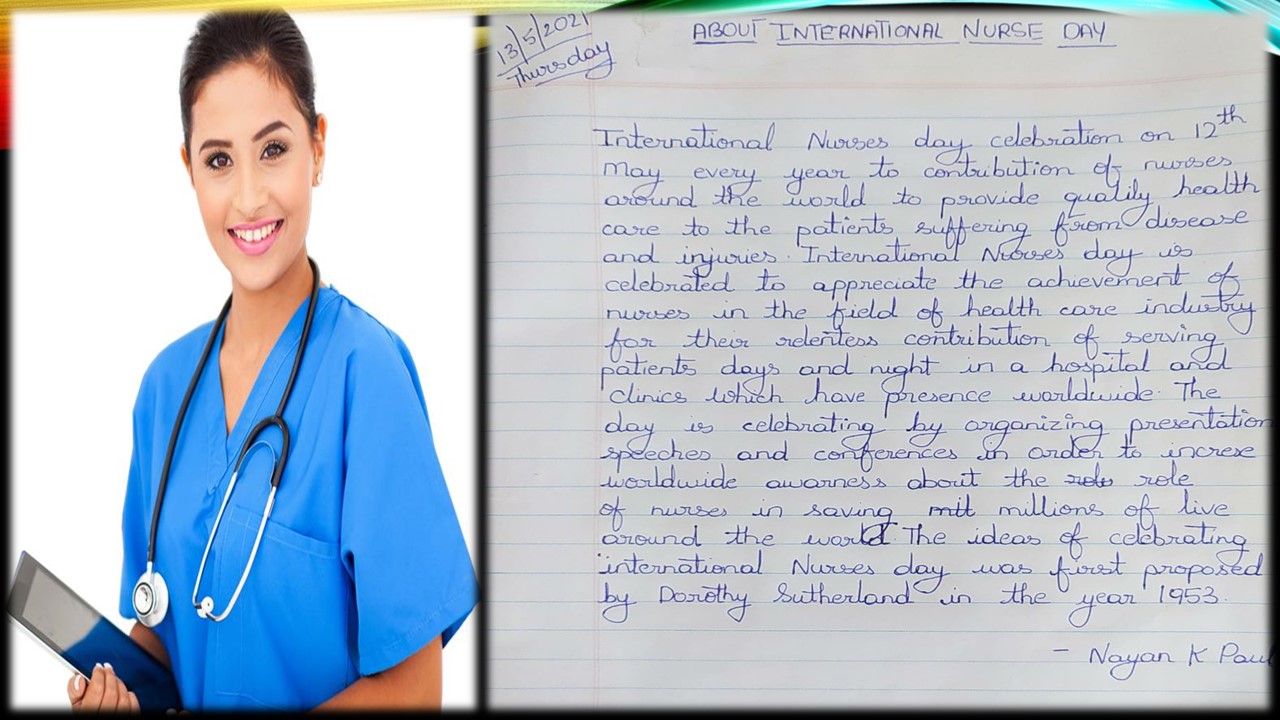 13/5/2021
Thursday
ABOUT INTERNATIONAL NURSE DAY
International Nurses day celebration on 12th
May every year to contribution of nurses
around the world to provide quality health
care to the patients suffering from disease
and injuries. International Nurses day is
celebrated to appreciate the achievement of
nurses in the field of health care industry
for their relentess contribution of serving
patients days and night in a hospital and
clinics which have presence worldwide. The
day is celebrating by organizing presentation
speeches and conferences in order to increse
worldwide awarness about the role
of nurses in saving millions of live
around the world The ideas of celebrating
international Nurses day was first proposed
by Dorothy Sutherland in the year 1953.
- Nayan K Paul